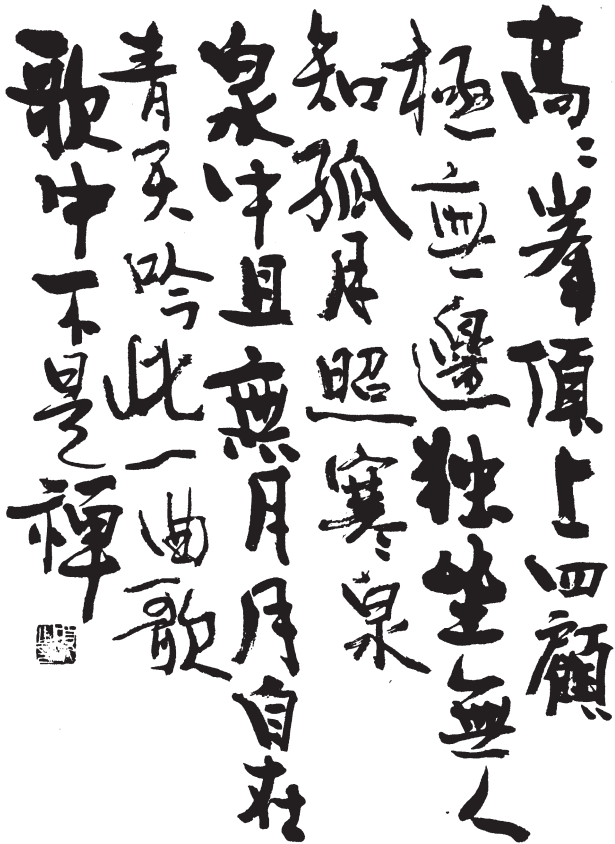 高々峯頂上四顧
極無邊独坐無人
知孤月照寒泉
泉中且無月月自在
青天吟此一曲歌
歌中不是禪